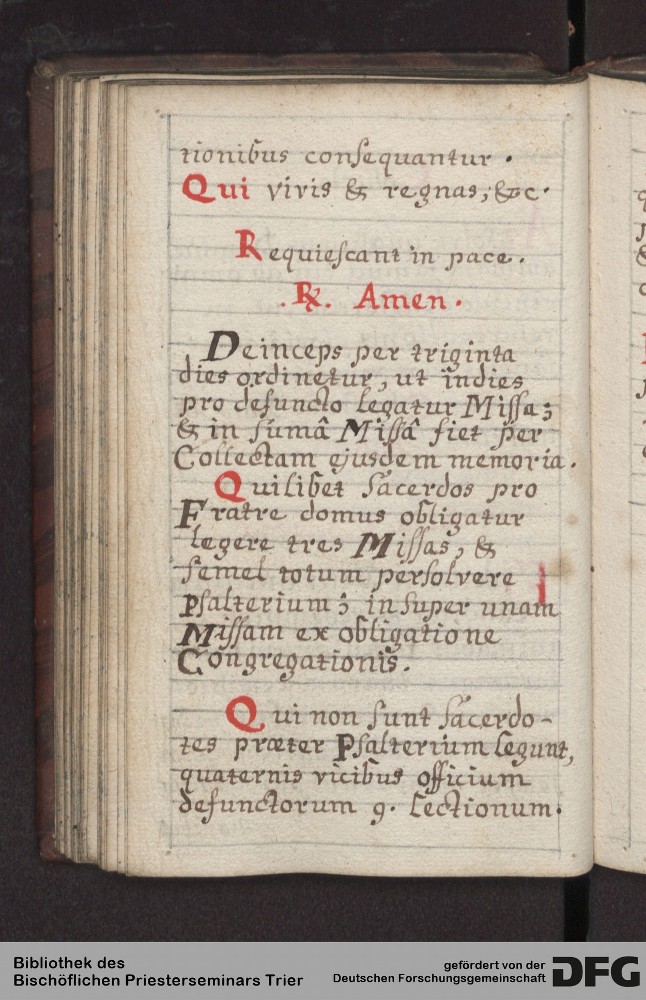 tionibus conſequantur.
Qui vivis & regnas, &c.
Requieſcant in pace.
. ℟. Amen.
Deinceps per triginta
dies ordinetur, ut indies
pro defuncto legatur Miſſa;
& in ſumâ Miſſâ fiet per
Collectam ejusdem memoria.
Quilibet Sacerdos pro
Fratre domus obligatur
legere tres Miſſas, &
ſemel totum perſolvere
Pſalterium; inſuper unam
Miſſam ex obligatione
Congregationis.
Qui non ſunt ſacerdo-
tes præter Pſalterium legunt,
quaternis vicibus officium
defunctorum 9. Lectionum.
Bibliothek des
Bischöflichen Priesterseminars Trier
gefördert von der
Deutschen Forschungsgemeinschaft
DFG